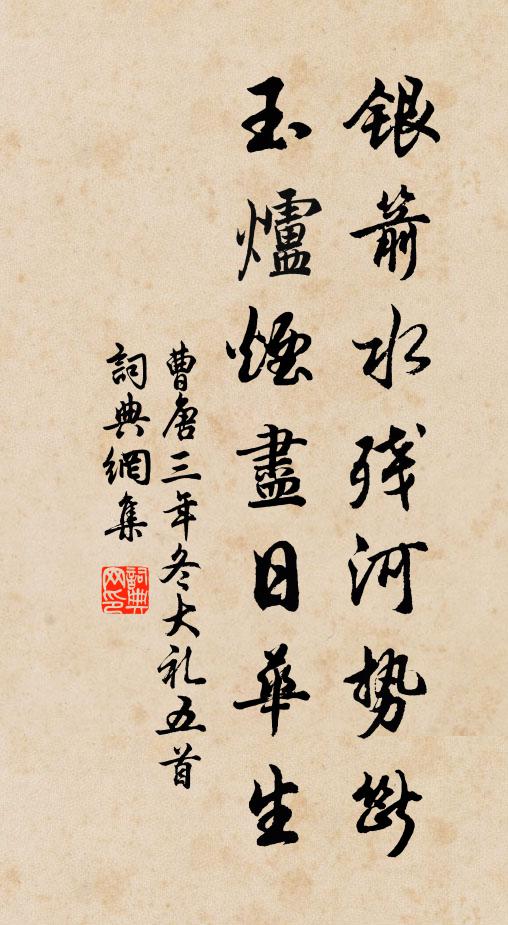 銀箭水残河勢斷
玉爐煙盡日華生
曹唐三年冬大礼五首
詞典網集
詞典
网印